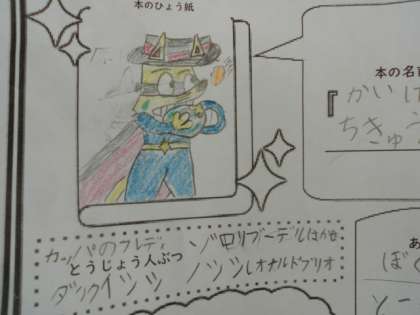 本のひょう紙
本の名前
『かいけ
ちきゅう
カッパのフレディ ゾロリ ブーデルはかせ
とうじょう人ぶつ
ダックイシシ ノシシ レオナルドブリオ
あ
ぼく
と